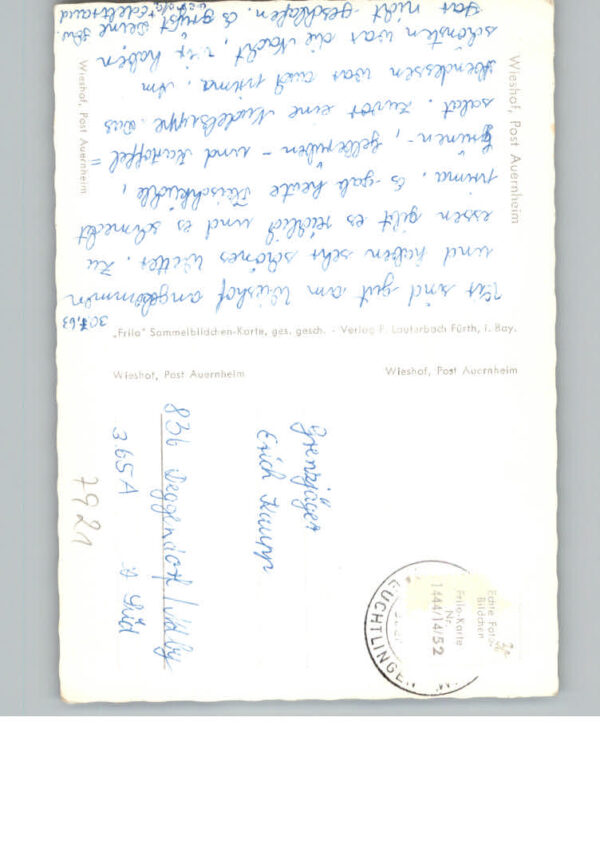 30.7.63
Wir sind gut am Wieshof angekommen
und haben sehr schönes Wetter. Zu
essen gibt es reichlich und es schmeckt
prima. Es gab heute Fleischküchle,
grünen-, gelberüben- und Kartoffel=
salat. Zuvor eine Nudelsuppe. Das
Abendessen war auch prima. Am
schönsten war die Nacht, wir haben
gar nicht geschlafen. Es grüßt Deine
Wieshof, Post Auernheim
Wieshof, Post Auernheim
„Frilo" Sammelbildchen-Karte, ges. gesch. - Verlag F. Lauterbach Fürth, i. Bay.
Wieshof, Post Auernheim
Wieshof, Post Auernheim
Grenzjäger
Erich
836 Deggendorf / Ndby
3.GSA
7921
Echte Foto-
Bildchen
Frilo-Karte
Nr.
1444/14/52